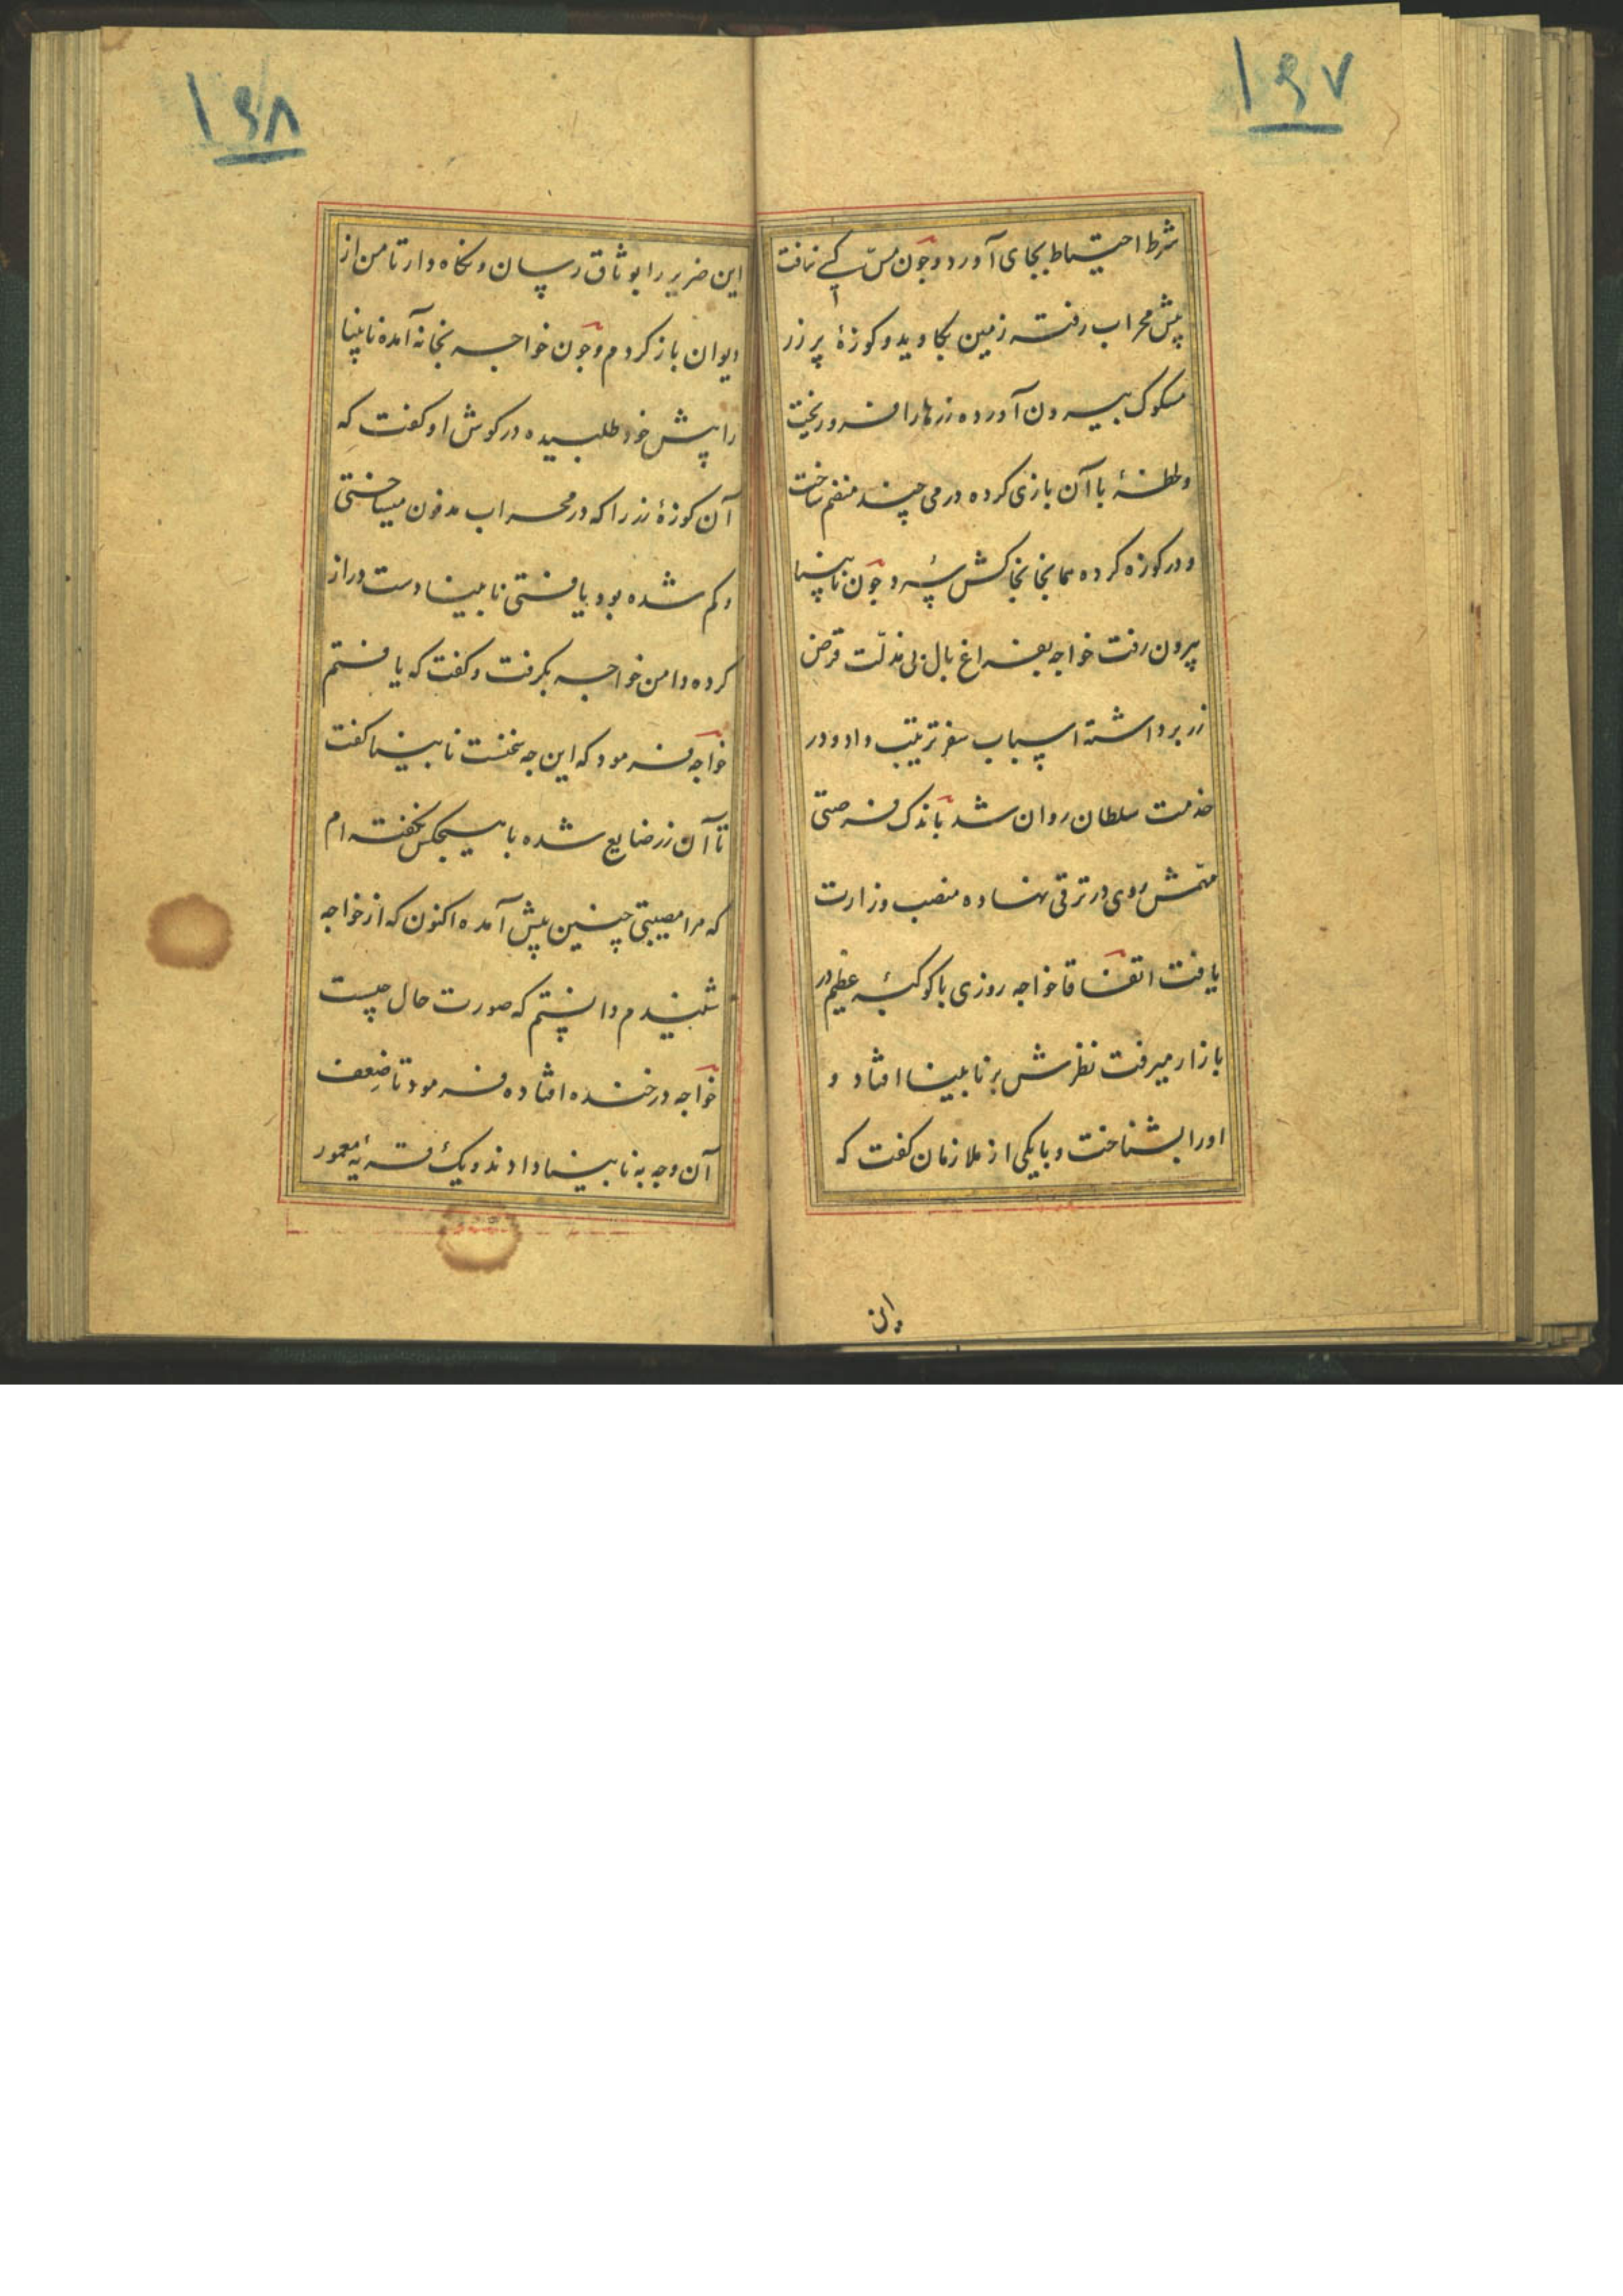 ۱۶۷
شرط احتیاط بجای آورد و چون مس کسی نیافت
پیش محراب رفته زمین بکاوید و کوزهٔ پر زر
مسکوک بیرون آورده زرها را فرو ریخت
و لحظهٔ با آن بازی کرده درمی چند منضم ساخت
و در کوزه کرده همانجا بخاکش سپرد و چون نابینا
بیرون رفت خواجه بفراغ بال بی مذلت قرض
زر برداشته اسباب سفر ترتیب داد و در
خدمت سلطان روان شد باندک فرصتی
مهمش روی در ترقی نهاده منصب وزارت
یافت اتفاقا خواجه روزی با کوکبهٔ عظیم در
بازار میرفت نظرش بر نابینا افتاد و
او را بشناخت و با یکی از ملازمان گفت که
این
۱۶۸
این ضریر را بوثاق رسان و نکاه دار تا من از
دیوان باز کردم و چون خواجه بخانه آمده نابینا
را پیش خود طلبیده در کوش او کفت که
آن کوزهٔ زر را که در محراب مدفون میساختی
و کم شده بود یافتی نابینا دست دراز
کرده دامن خواجه بکرفت و کفت که یافتم
خواجه فرمود که این چه سخنست نابینا کفت
تا آن زر ضایع شده با هیچکس نکفته ام
که مرا مصیبتی چنین پیش آمده اکنون که از خواجه
شنیدم دانستم که صورت حال چیست
خواجه در خنده افتاده فرمود تا ضعف
آن وجه به نابینا دادند و یک قریهٔ معمور